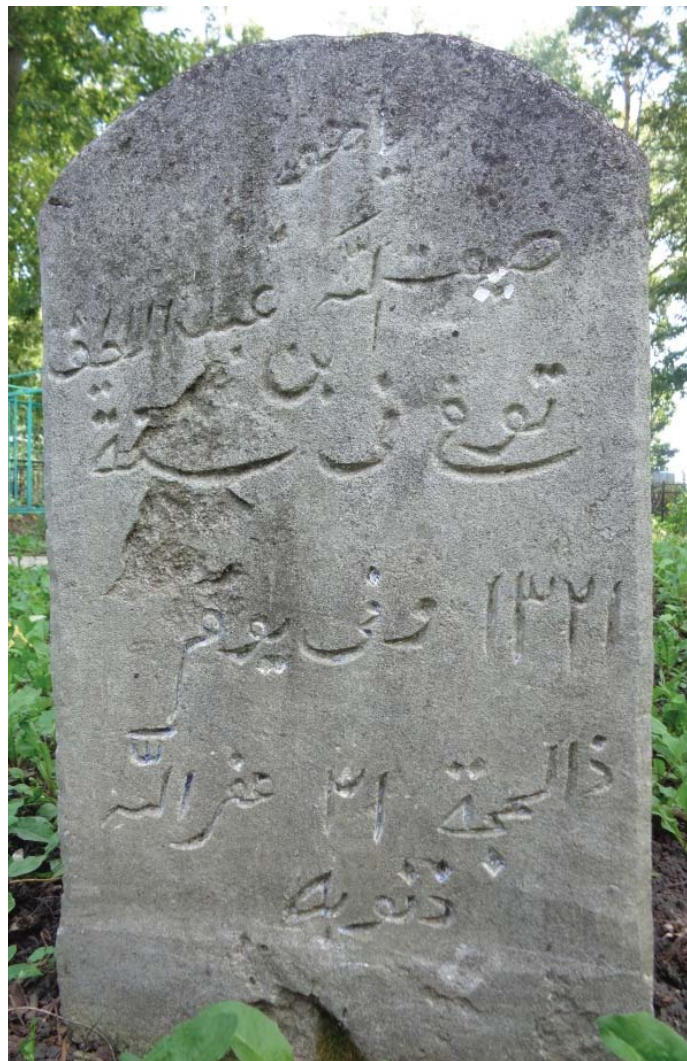 صبغت الله
بن عبد اللطيف
توفى فى سنة
١٣٢١ وفى يوم
ذالحجة ٢١ غفر الله
ذنوبه